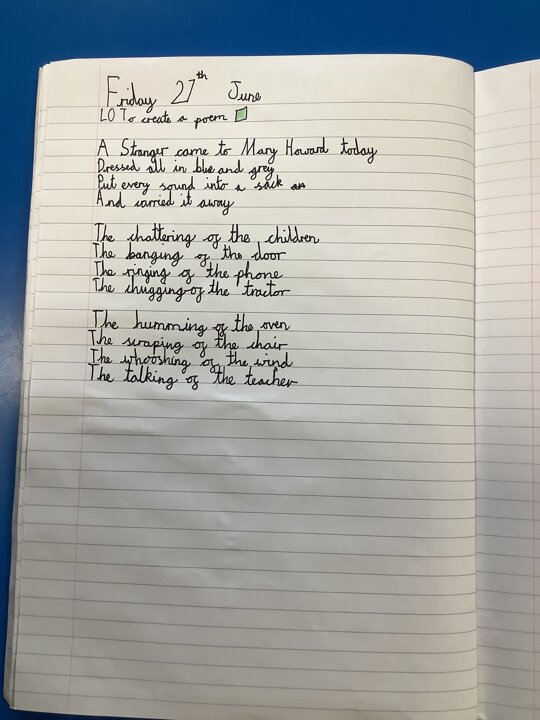 Friday 27th June
LO To create a poem
A Stranger came to Mary Howard today
Dressed all in blue and grey
Put every sound into a sack
And carried it away
The chattering of the children
The banging of the door
The ringing of the phone
The chugging of the tractor
The humming of the oven
The scraping of the chair
The whooshing of the wind
The talking of the teacher